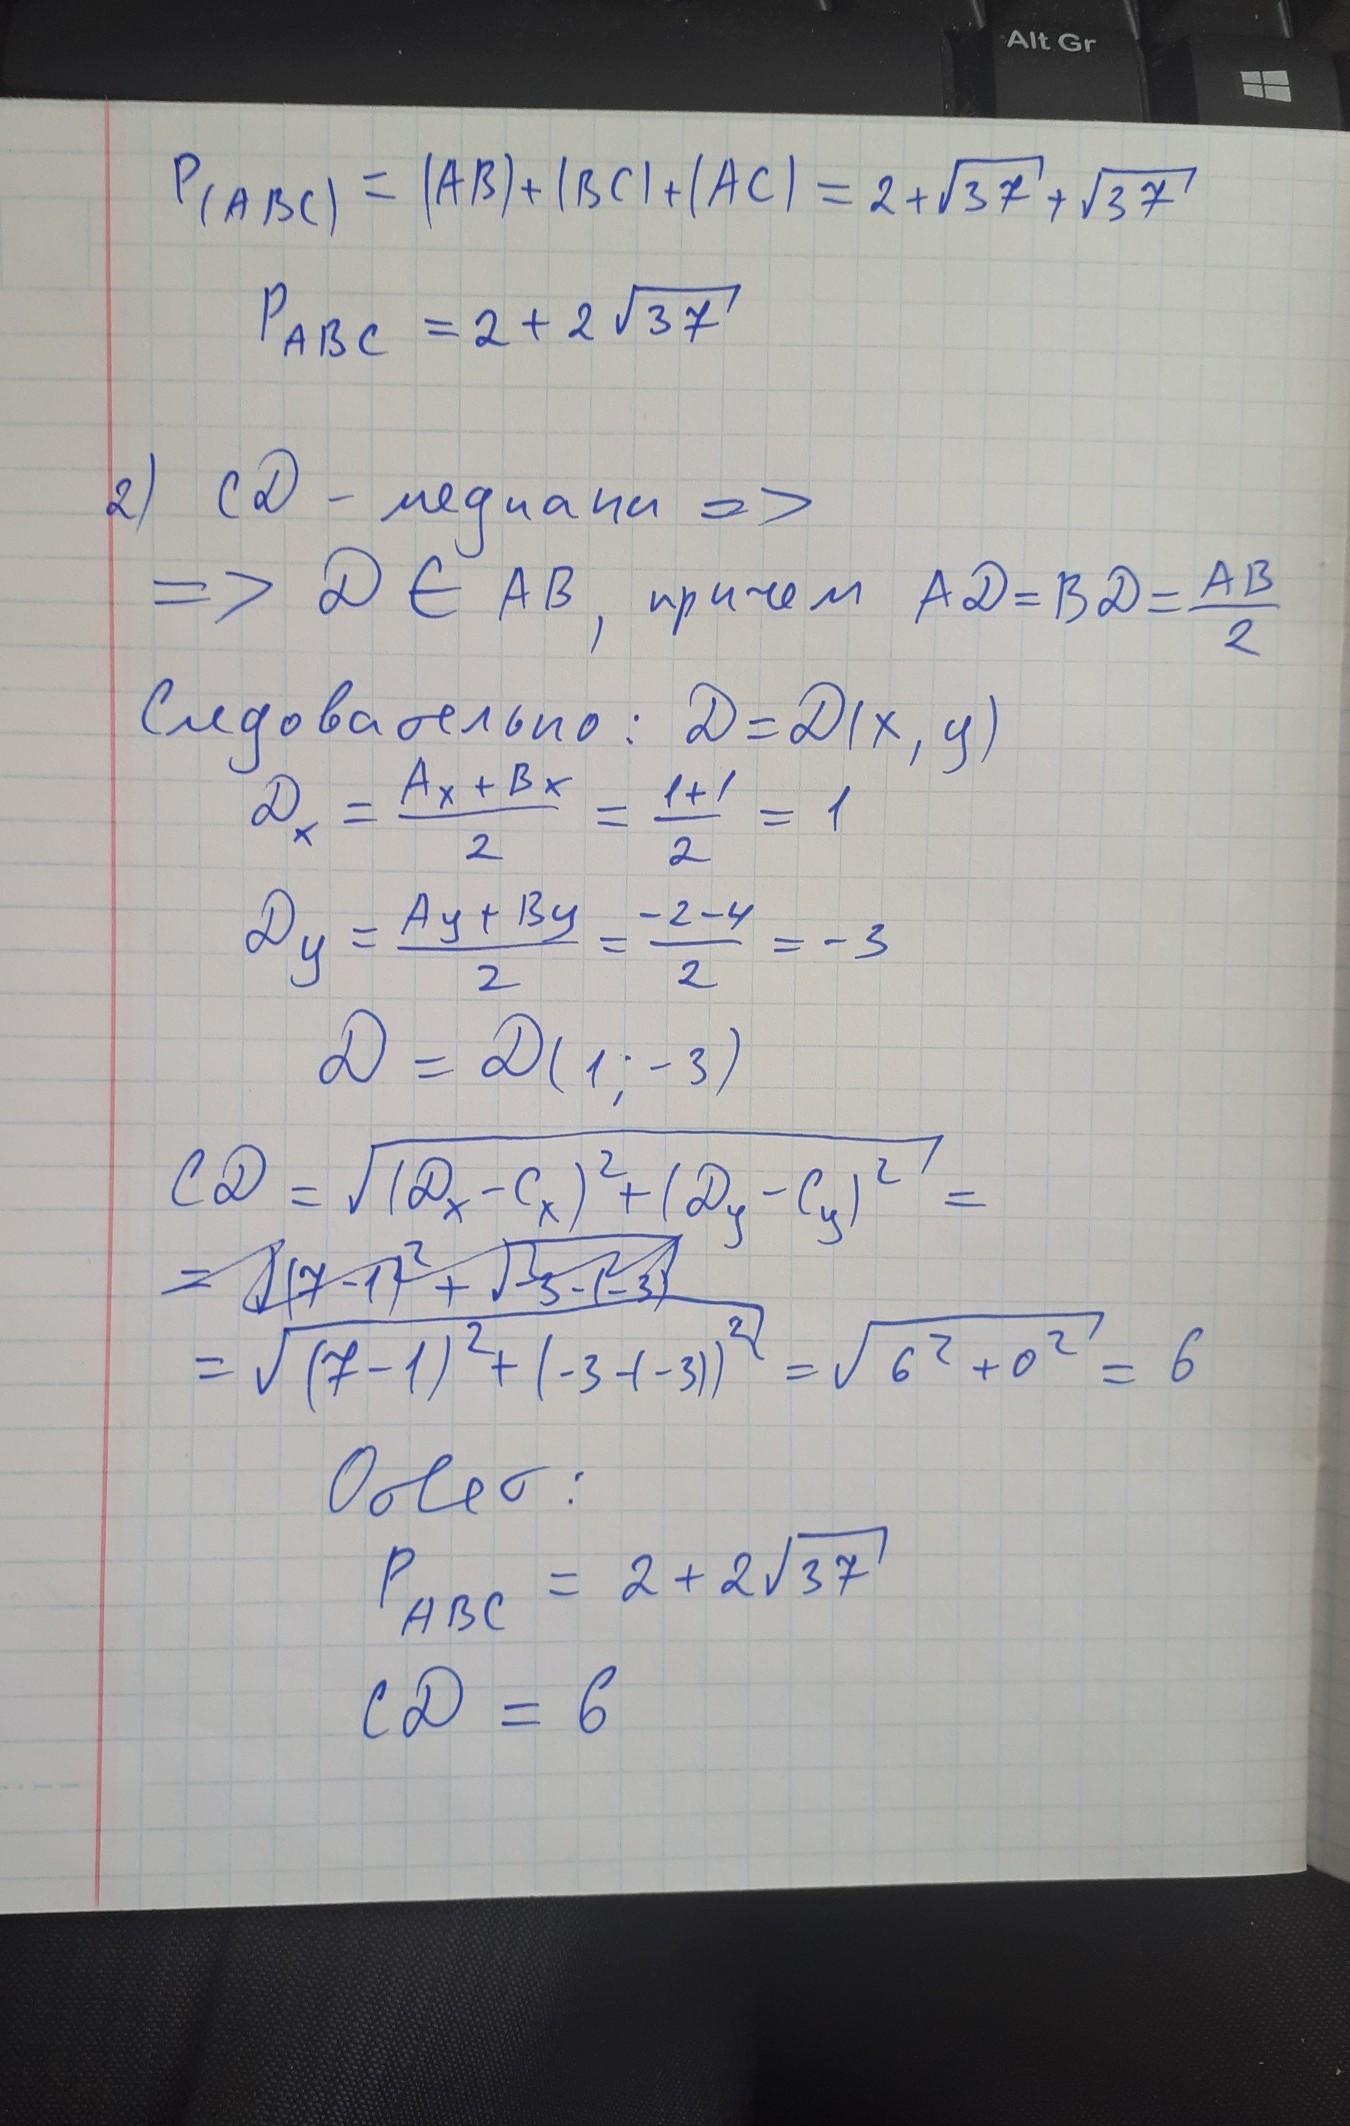 Alt Gr
P(ABC) = |AB|+|BC|+|AC| = 2+√37+√37
P_ABC = 2+2√37
2) CD - медиана =>
=> D ∈ AB, причем AD=BD=AB/2
Следовательно: D=D(x,y)
D_x = (A_x+B_x)/2 = (1+1)/2 = 1
D_y = (A_y+B_y)/2 = (-2-4)/2 = -3
D = D(1;-3)
CD = √((D_x-C_x)²+(D_y-C_y)²) =
= √((7-1)²+(-3-(-3))²) = √(6²+0²) = 6
Ответ:
P_ABC = 2+2√37
CD = 6